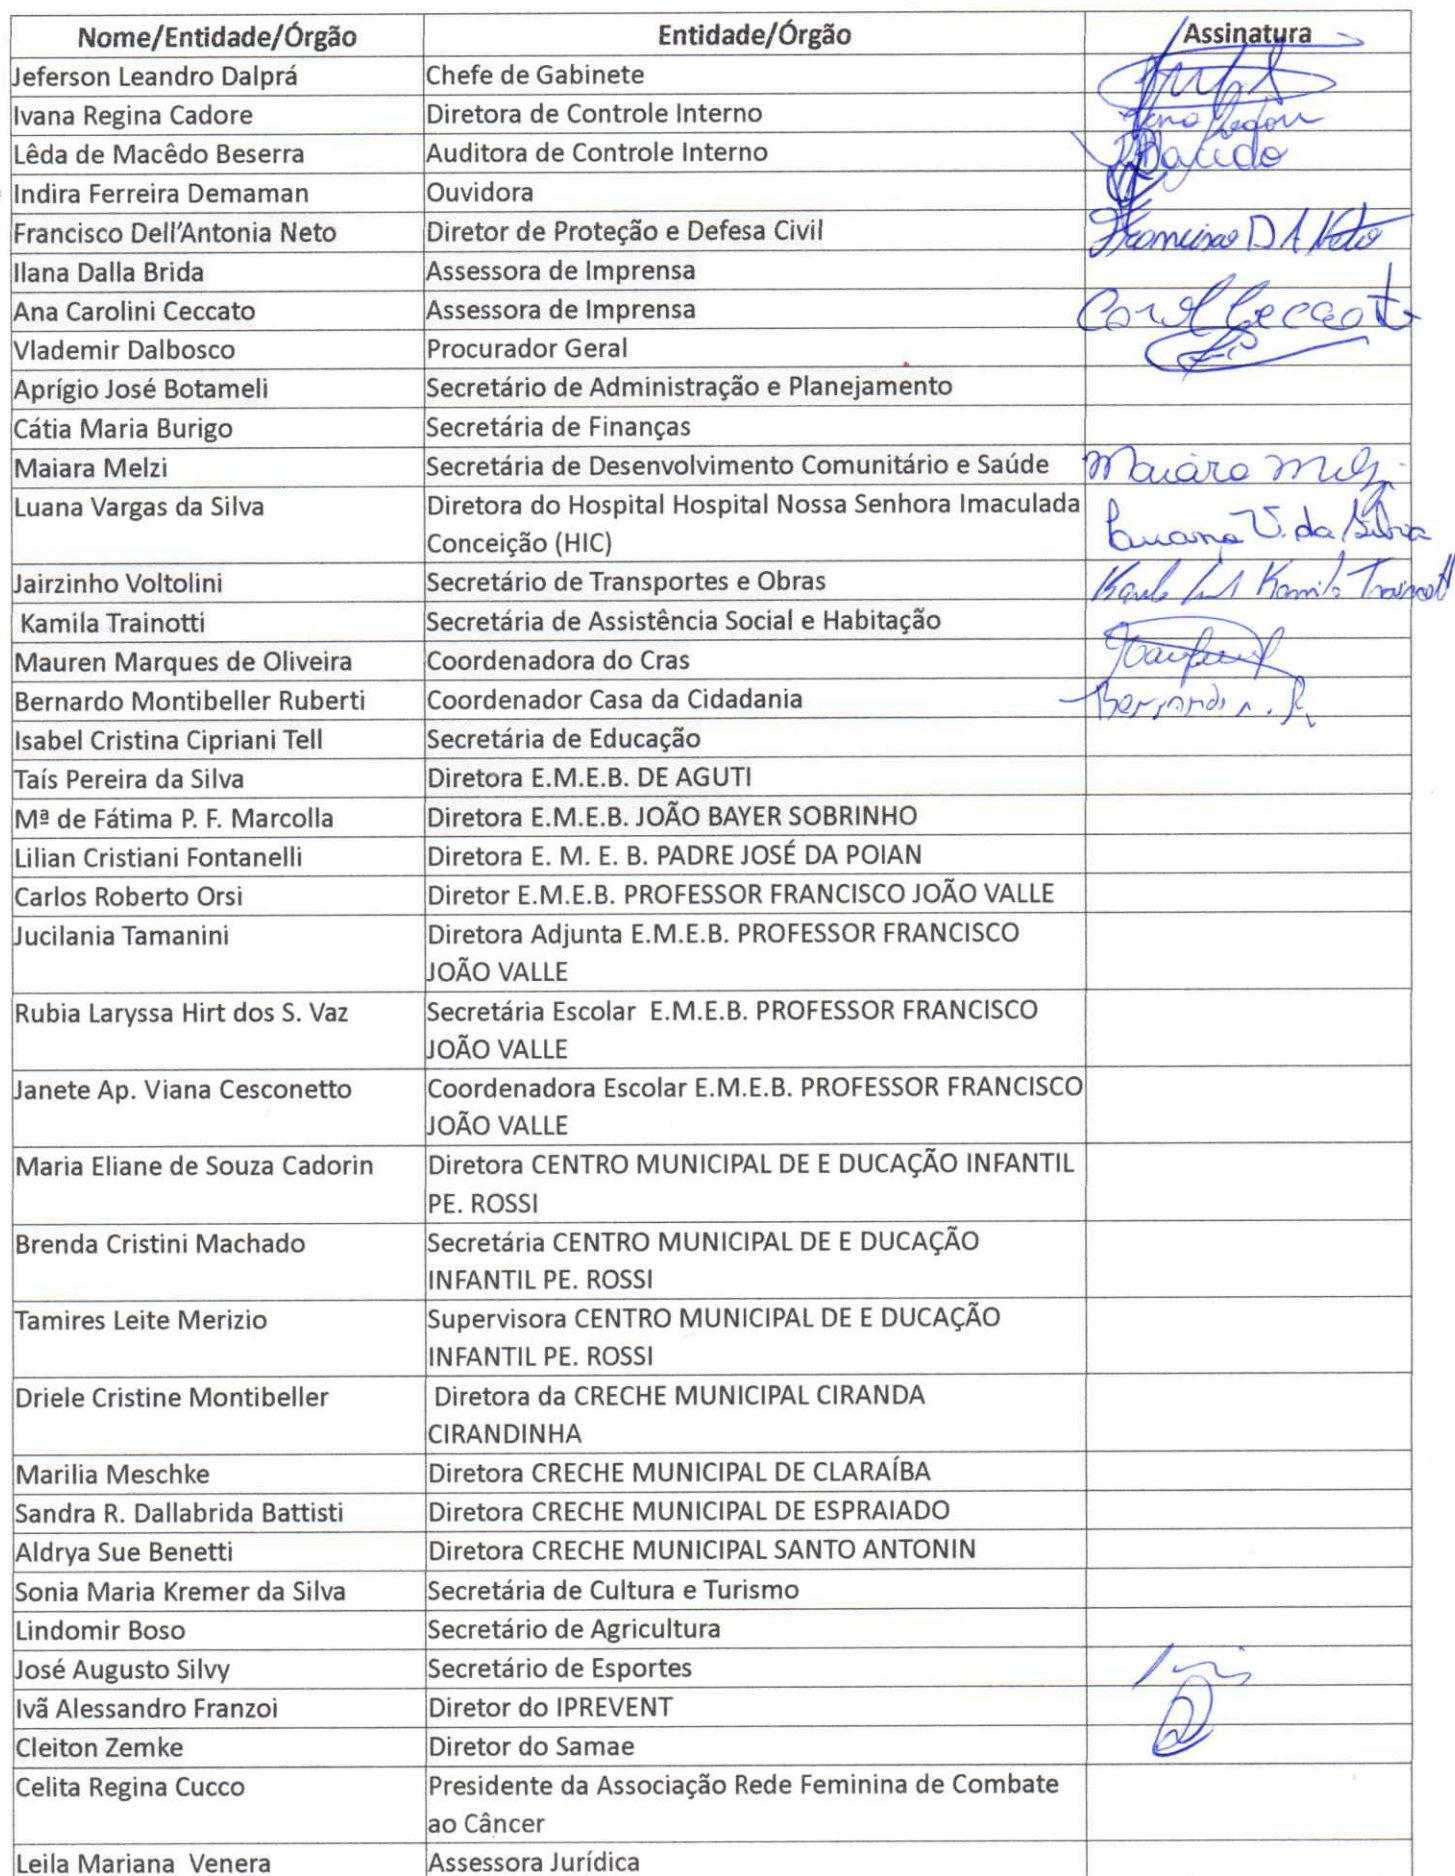 Nome/Entidade/Órgão Entidade/Órgão Assinatura
Jeferson Leandro Dalprá Chefe de Gabinete
Ivana Regina Cadore Diretora de Controle Interno
Lêda de Macêdo Beserra Auditora de Controle Interno
Indira Ferreira Demaman Ouvidora
Francisco Dell'Antonia Neto Diretor de Proteção e Defesa Civil Francisco D A Neto
Ilana Dalla Brida Assessora de Imprensa
Ana Carolini Ceccato Assessora de Imprensa Carol Ceccato
Vlademir Dalbosco Procurador Geral
Aprígio José Botameli Secretário de Administração e Planejamento
Cátia Maria Burigo Secretária de Finanças
Maiara Melzi Secretária de Desenvolvimento Comunitário e Saúde Maiara Melzi
Luana Vargas da Silva Diretora do Hospital Hospital Nossa Senhora Imaculada Luana V. da Silva
Conceição (HIC)
Jairzinho Voltolini Secretário de Transportes e Obras Kamila Trainotti
Kamila Trainotti Secretária de Assistência Social e Habitação
Mauren Marques de Oliveira Coordenadora do Cras
Bernardo Montibeller Ruberti Coordenador Casa da Cidadania Bernardo M. R.
Isabel Cristina Cipriani Tell Secretária de Educação
Taís Pereira da Silva Diretora E.M.E.B. DE AGUTI
Mª de Fátima P. F. Marcolla Diretora E.M.E.B. JOÃO BAYER SOBRINHO
Lilian Cristiani Fontanelli Diretora E. M. E. B. PADRE JOSÉ DA POIAN
Carlos Roberto Orsi Diretor E.M.E.B. PROFESSOR FRANCISCO JOÃO VALLE
Jucilania Tamanini Diretora Adjunta E.M.E.B. PROFESSOR FRANCISCO
JOÃO VALLE
Rubia Laryssa Hirt dos S. Vaz Secretária Escolar E.M.E.B. PROFESSOR FRANCISCO
JOÃO VALLE
Janete Ap. Viana Cesconetto Coordenadora Escolar E.M.E.B. PROFESSOR FRANCISCO
JOÃO VALLE
Maria Eliane de Souza Cadorin Diretora CENTRO MUNICIPAL DE E DUCAÇÃO INFANTIL
PE. ROSSI
Brenda Cristini Machado Secretária CENTRO MUNICIPAL DE E DUCAÇÃO
INFANTIL PE. ROSSI
Tamires Leite Merizio Supervisora CENTRO MUNICIPAL DE E DUCAÇÃO
INFANTIL PE. ROSSI
Driele Cristine Montibeller Diretora da CRECHE MUNICIPAL CIRANDA
CIRANDINHA
Marilia Meschke Diretora CRECHE MUNICIPAL DE CLARAÍBA
Sandra R. Dallabrida Battisti Diretora CRECHE MUNICIPAL DE ESPRAIADO
Aldrya Sue Benetti Diretora CRECHE MUNICIPAL SANTO ANTONIN
Sonia Maria Kremer da Silva Secretária de Cultura e Turismo
Lindomir Boso Secretário de Agricultura
José Augusto Silvy Secretário de Esportes
Ivã Alessandro Franzoi Diretor do IPREVENT
Cleiton Zemke Diretor do Samae
Celita Regina Cucco Presidente da Associação Rede Feminina de Combate
ao Câncer
Leila Mariana Venera Assessora Jurídica